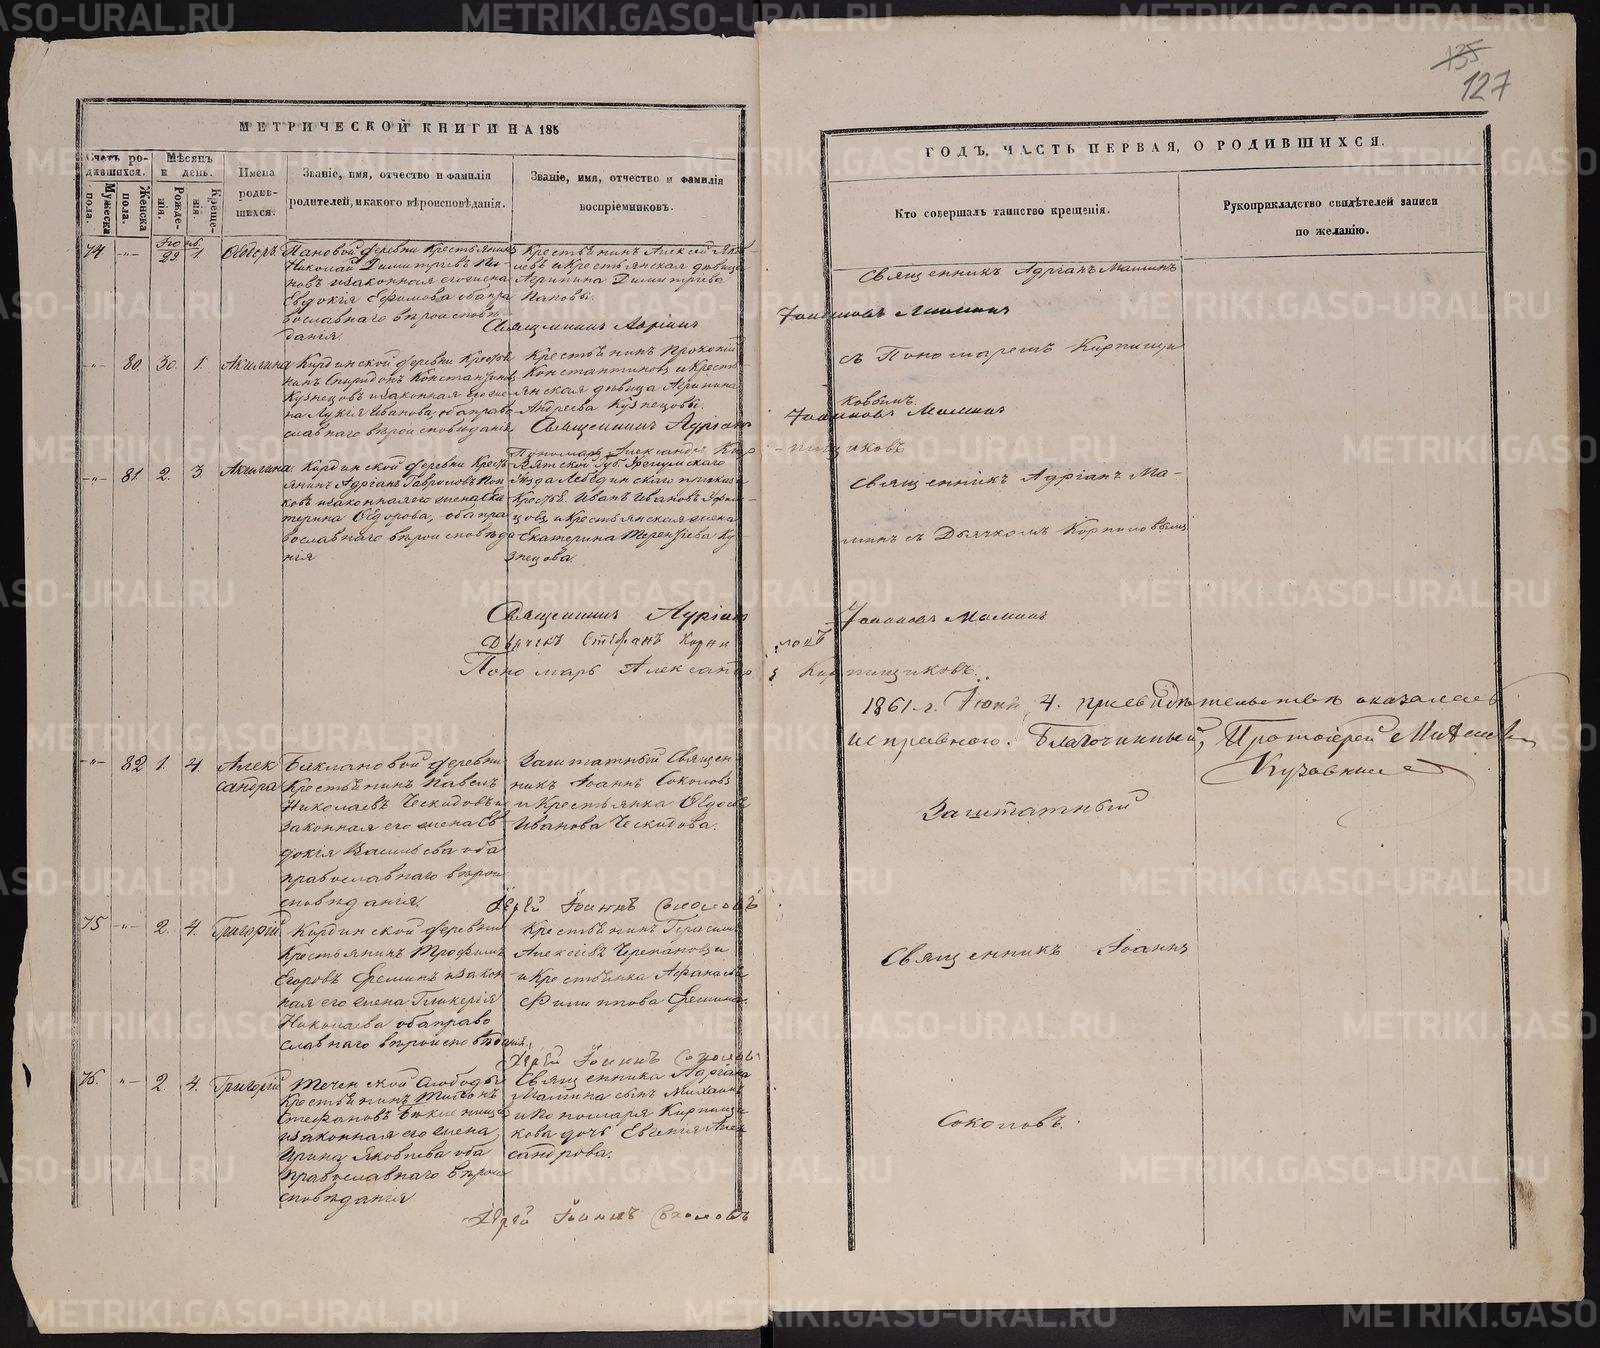 135
127
МЕТРИЧЕСКОЙ КНИГИ НА 185
ГОДЪ, ЧАСТЬ ПЕРВАЯ, О РОДИВШИХСЯ.
Счетъ родившихся.
Мужеска пола.
Женска пола.
Мѣсяцъ и день.
Рожденія.
Крещенія.
Имена родившихся.
Званіе, имя, отчество и фамилія
родителей, и какого вѣроисповѣданія.
Званіе, имя, отчество и фамилія
воспріемниковъ.
Кто совершалъ таинство крещенія.
Рукоприкладство свидѣтелей записи
по желанію.
74 -„- 29. 1. Ѳеодоръ
Пановой деревни Крестьянинъ
Николай Димитріевъ Па-
новъ и законная его жена
Евдокія Ефимова оба пра
вославнаго вѣроисповѣ-
данія.
Крестьянинъ Алексѣй Яков
левъ и Крестьянская дѣвица
Агрипина Димитріева
Пановы.
Священникъ Адріанъ Маминъ
Священникъ Адріанъ
Іоанновъ Маминъ
съ Пономаремъ Кирпищи
ковымъ.
-„- 80. 30. 1. Акилина
Кирдинской деревни Кресть
нинъ Спиридонъ Константиновъ
Кузнецовъ и законная его же
на Лукія Иванова, оба право
славнаго вѣроисповѣданія
Крестьянинъ Прокопій
Константиновъ и Кресть
янская дѣвица Агрипина
Андреева Кузнецовы.
Священникъ Адріанъ
Іоанновъ Маминъ
Пономарь Александръ Кир
-пищиковъ
-„- 81. 2. 3. Акилина
Кирдинской деревни Кресть
янинъ Адріанъ Гавриловъ Поп
ковъ и законная его жена Ека
терина Ѳедорова, оба пра
вославнаго вѣроисповѣда
нія
Вятской Губ. Уржумскаго
Уѣзда Лебединскаго приказа
Крестья. Иванъ Ивановъ
цовъ и Крестьянская жена
Екатерина Терентьева Ку
знецова.
Священникъ Адріанъ Ма-
минъ съ Дьячкомъ Корниловымъ
Священникъ Адріанъ
Іоанновъ Маминъ
Дьячекъ Стефанъ Корни
ловъ
Пономарь Александръ Кирпищиковъ.
1861 г. Іюня 4. при свидѣтельствѣ оказалась
исправною. Благочинный, Протоіерей
-„- 82 1. 4. Александра
Баклановой деревни
Крестьянинъ Павелъ
Николаевъ Ческидовъ и
законная его жена Ев
докія Васильева оба
православнаго вѣрои
сповѣданія.
Заштатный Священ
никъ Іоаннъ Соколовъ
и Крестьянка Ѳедосья
Иванова Ческидова.
Іерей Іоаннъ Соколовъ
Заштатный
75 -„- 2. 4. Григорій
Кирдинской деревни
Крестьянинъ Трофимъ
Егоровъ Ереминъ и закон
ная его жена Гликерія
Николаева оба право
славнаго вѣроисповѣданія.
Крестьянинъ Герасимъ
Алексѣевъ Черепановъ и
и Крестьянка Афанасья
Филиппова Еремина.
Іерей Іоаннъ Соколовъ
Священникъ Іоаннъ
76. -„- 2. 4. Григорій
Теченской Слободы
Крестьянинъ
Стефановъ
и законная его жена
Ирина Яковлева оба
православнаго вѣрои
сповѣданія
Священника Адріана
Мамина сынъ Михаилъ
и Пономаря Кирпищи
кова дочь Евгенія Алек
сандрова.
Іерей Іоаннъ Соколовъ
Соколовъ.
METRIKI.GASO-URAL.RU